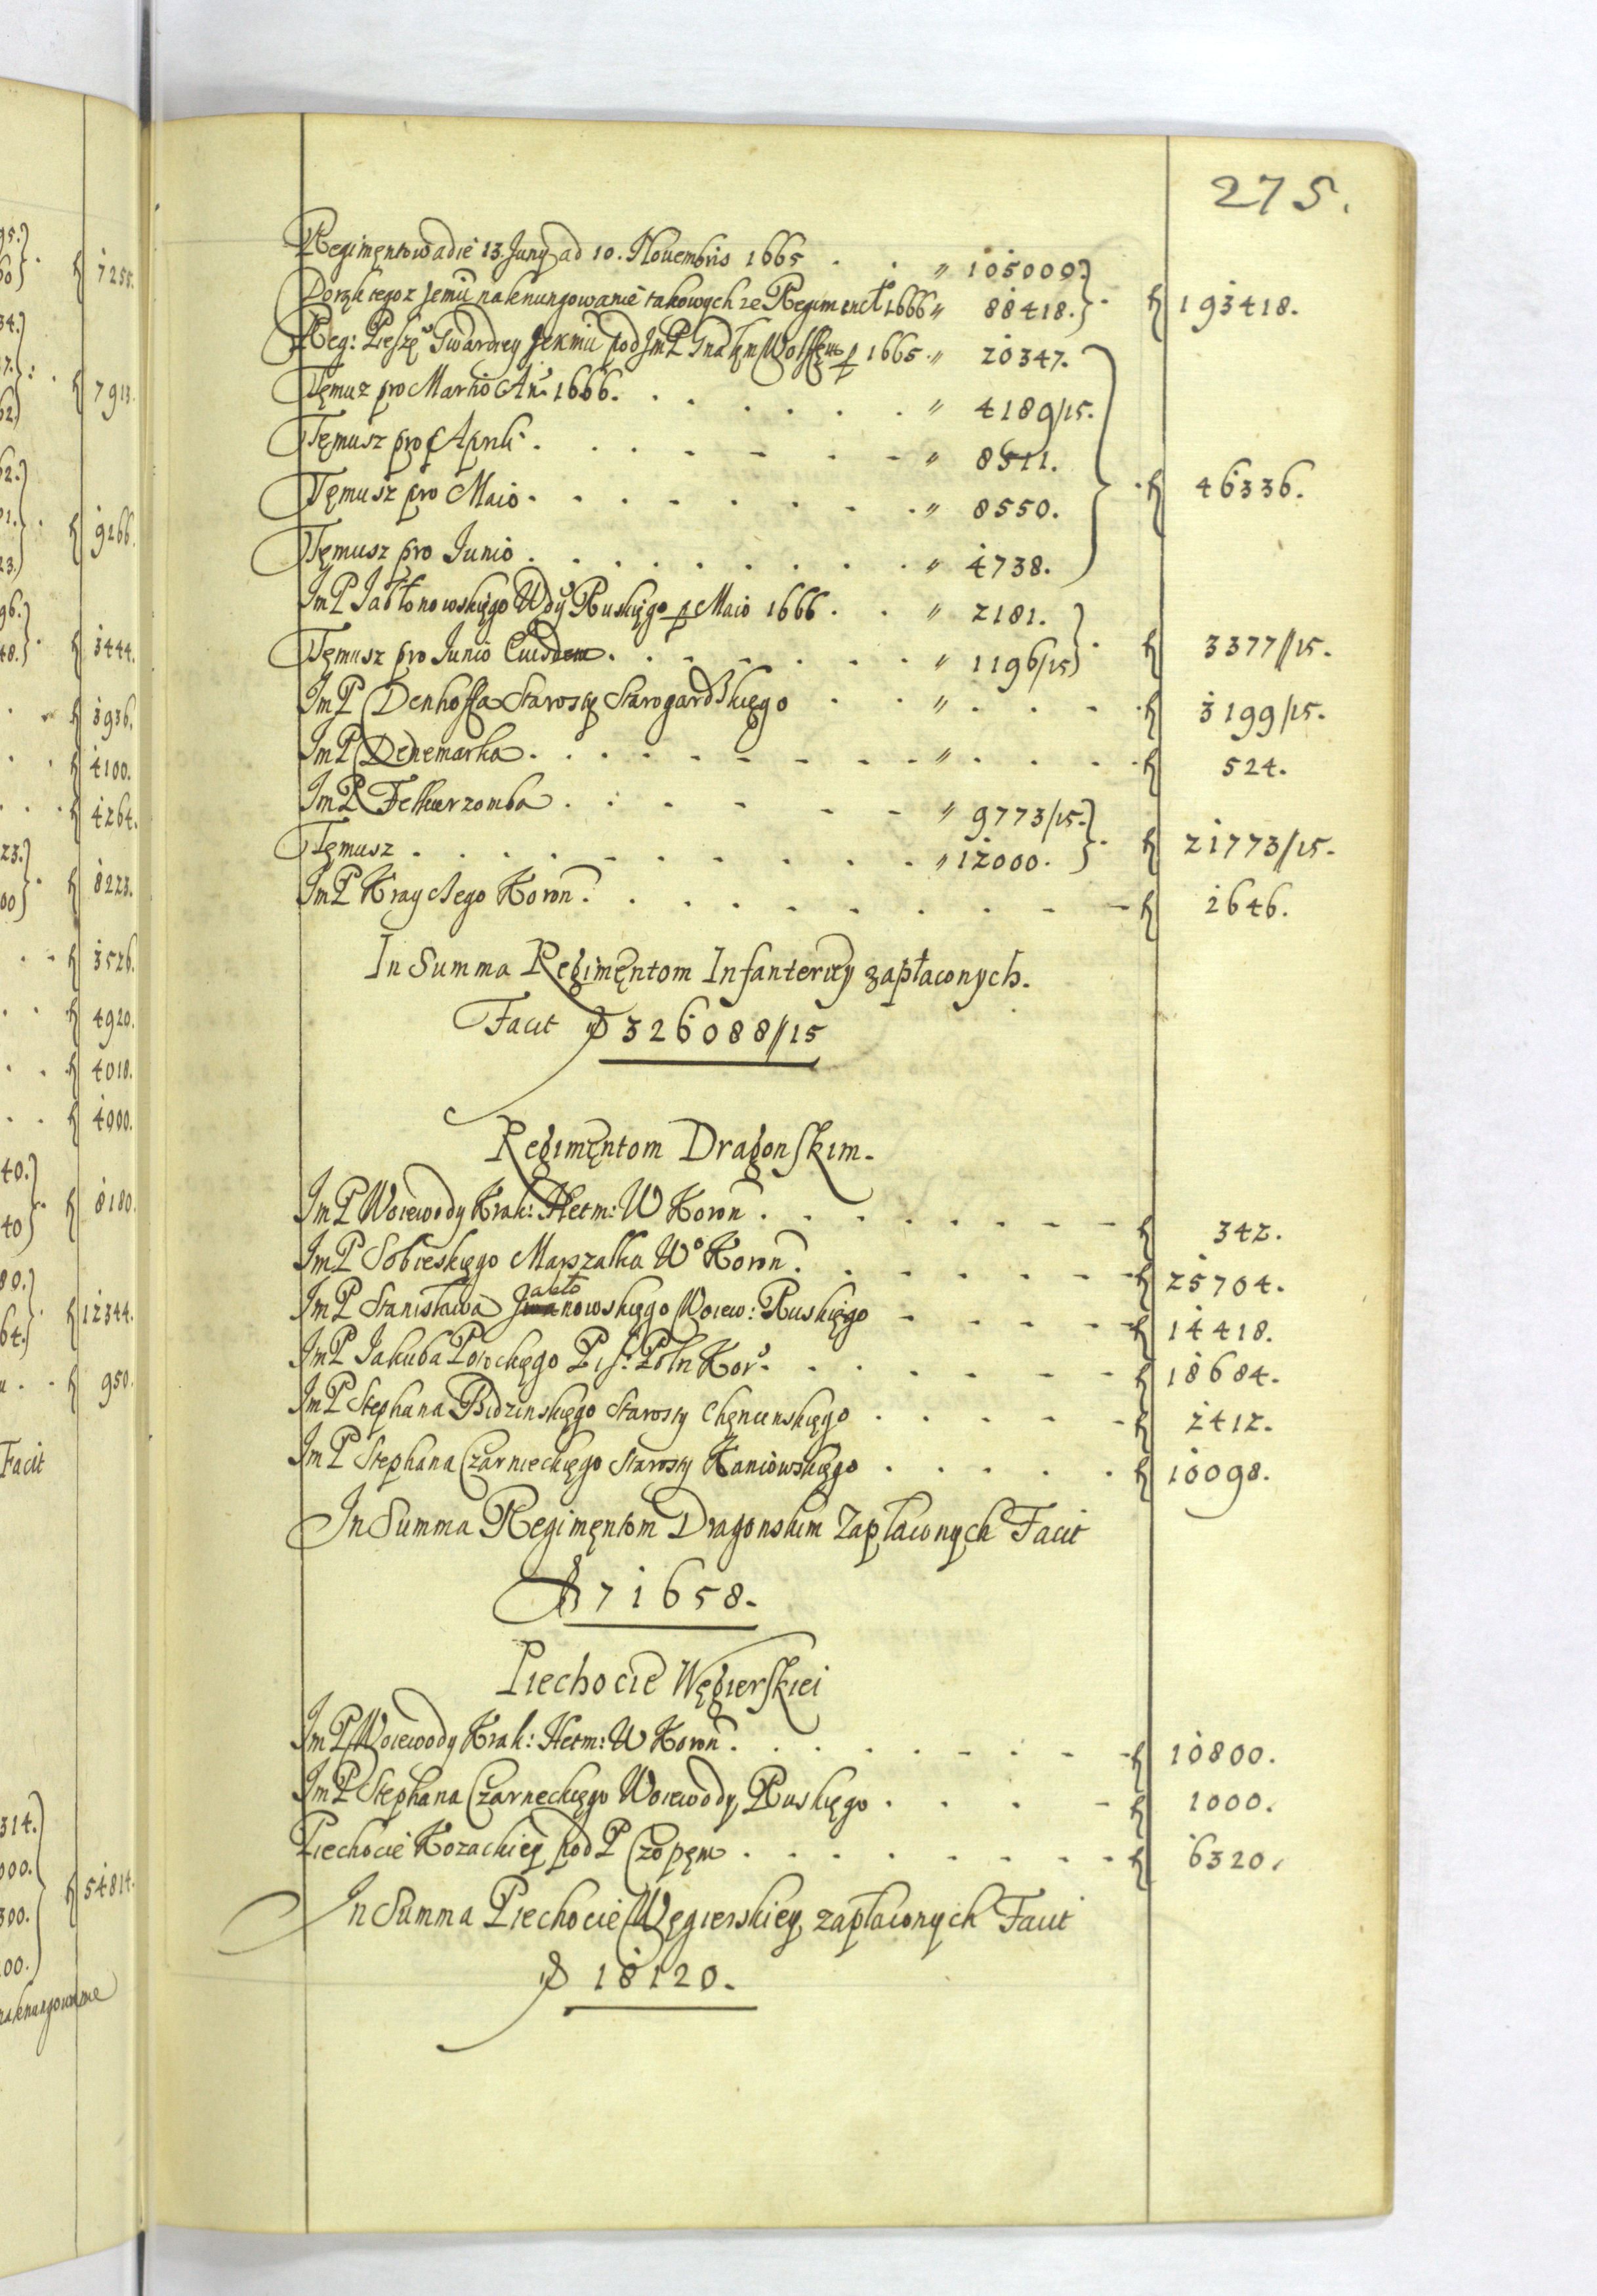 275.
Regimentow a die 13. Juny ad 10. Nouembris 1665 . . " 105000.
Do rąk tegoz Jemu na knungowanie takowych ze Regiment 1666 " 88418. } . ƒ 193418.
Reg: Pieszę Gwardyey JeKMci pod ImP Gnałęm Wolffęm p 1665 . " 20347.
Tęmuz pro Martio An 1666. . . . . . " 4189/15.
Tęmusz pro Aprili . . . . - - . - " 8511.
Tęmusz pro Maio . . . - . . . - . " 8550. . ƒ 46336.
Tęmusz pro Junio . . . . . . . . . " 4738.
ImP Jabłonowskięgo Wdy Ruskięgo p Maio 1666 . . " 2181.
Tęmusz pro Junio Eiusdem . . - - . . . " 1196/15 } . ƒ 3377//15.
ImP Denhoffa Starosty Starogardskięgo . . " . . - . ƒ 3199/15.
ImP Denemarka . . . . - - . - - . - " . . - . ƒ 524.
ImP Felkierzomba . . . - - . - - " 9773/15.
Tęmusz . . . . - . . . . . " 12000. } . ƒ 21773/15.
ImP Krayczego Koron . . . . - . . . - - ƒ 2646.
In Summa Regimęntom Infanteriey zapłaconych.
Facit ƒ 326088//15
Regimęntom Dragonskim.
ImP Woiewody Krak: Hetm: W Koron . . . . . . - - - ƒ 342.
ImP Sobieskięgo Marszałka Wo Koron . . . . . - - - ƒ 25704.
ImP Stanisława Jabłonowskięgo Woiew: Ruskięgo - - - - - ƒ 14418.
ImP Jakuba Potockięgo Pis: Poln Kor . . . . - - - ƒ 18684.
ImP Stephana Bidzinskięgo Starosty Chęncinskięgo . . . - - ƒ 2412.
ImP Stephana Czarnieckięgo Starosty Kaniowskięgo . . . . . ƒ 10098.
In Summa Regimęntom Dragonskim Zapłaconych Facit
ƒ 71658.
Piechocie Węgierskiei
ImP Woiewody Krak: Hetm: W Koron . . . . . - . - - ƒ 10800.
ImP Stephana Czarneckięgo Woiewody Ruskięgo . . . - ƒ 1000.
Piechocie Kozackiey pod P Czopęm . . . . . . - - - ƒ 6320.
In Summa Piechocie Węgierskiey zapłaconych Facit
ƒ 18120.